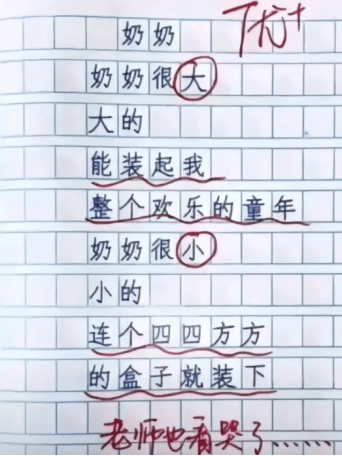 奶奶
优+
奶奶很大
大的
能装起我
整个欢乐的童年
奶奶很小
小的
连个四四方方
的盒子就装下
老师也看哭了……